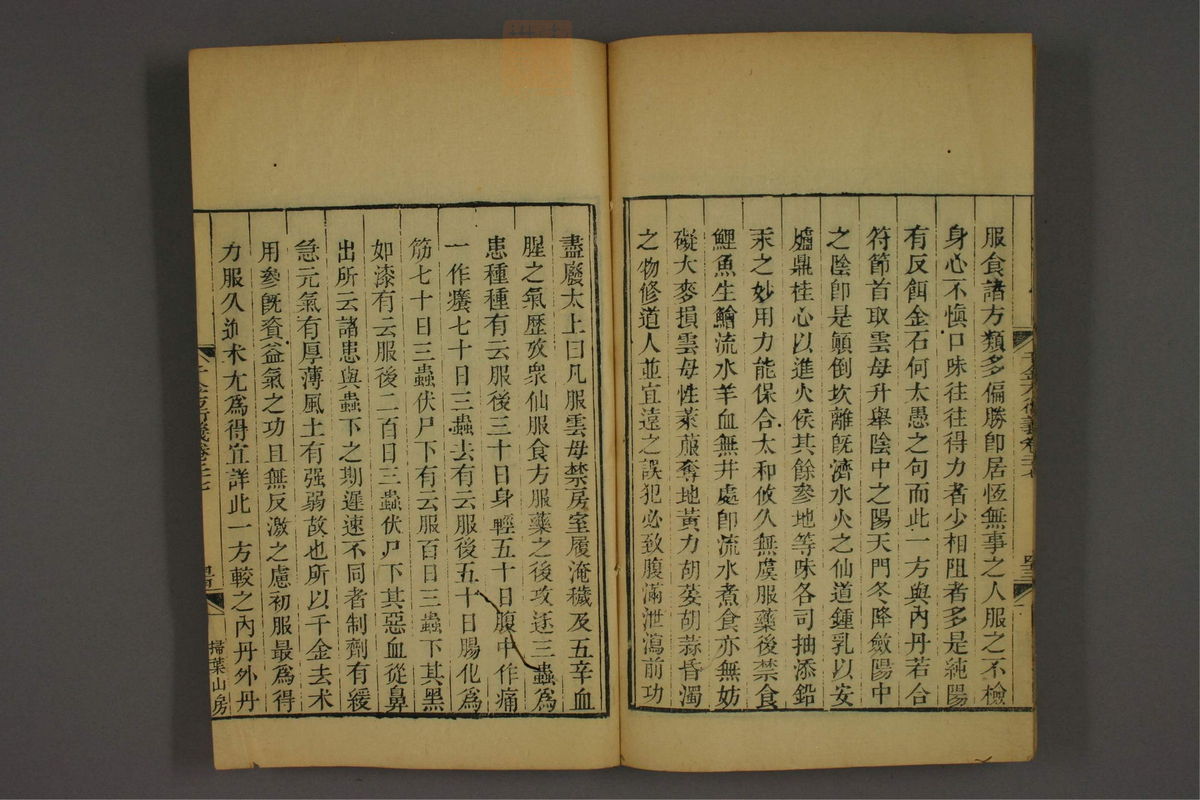 服食諸方類多偏勝卽居恆無事之人服之不檢
身心不愼口味往往得力者少相阻者多是純陽
有反餌金石何太愚之句而此一方與內丹若合
符節首取雲母升舉陰中之陽天門冬降斂陽中
之陰卽是顚倒坎離旣濟水火之仙道鍾乳以安
爐鼎桂心以進火侯其餘參地等味各司抽添鉛
汞之妙用力能保合太和攸久無虞服藥後禁食
鯉魚生鱠流水羊血無井處卽流水煮食亦無妨
礙大麥損雲母性萊菔奪地黃力胡荽胡蒜昏濁
之物修道人並宜遠之誤犯必致腹滿泄瀉前功
盡廢太上曰凡服雲母禁房室履淹穢及五辛血
腥之氣歷攷衆仙服食方服藥之後攻逐三蟲爲
患種種有云服後三十日身輕五十日腹中作痛
一作癢七十日三蟲去有云服後五十日腸化爲
筋七十日三蟲伏尸下有云服百日三蟲下其黑
如漆有云服後二百日三蟲伏尸下其惡血從鼻
出所云諸患與蟲下之期遲速不同者制劑有緩
急元氣有厚薄風土有强弱故也所以千金去术
用參旣資益氣之功且無反激之慮初服最爲得
力服久進术尤爲得宜詳此一方較之內丹外丹
千金方衍義卷二十七
掃葉山房